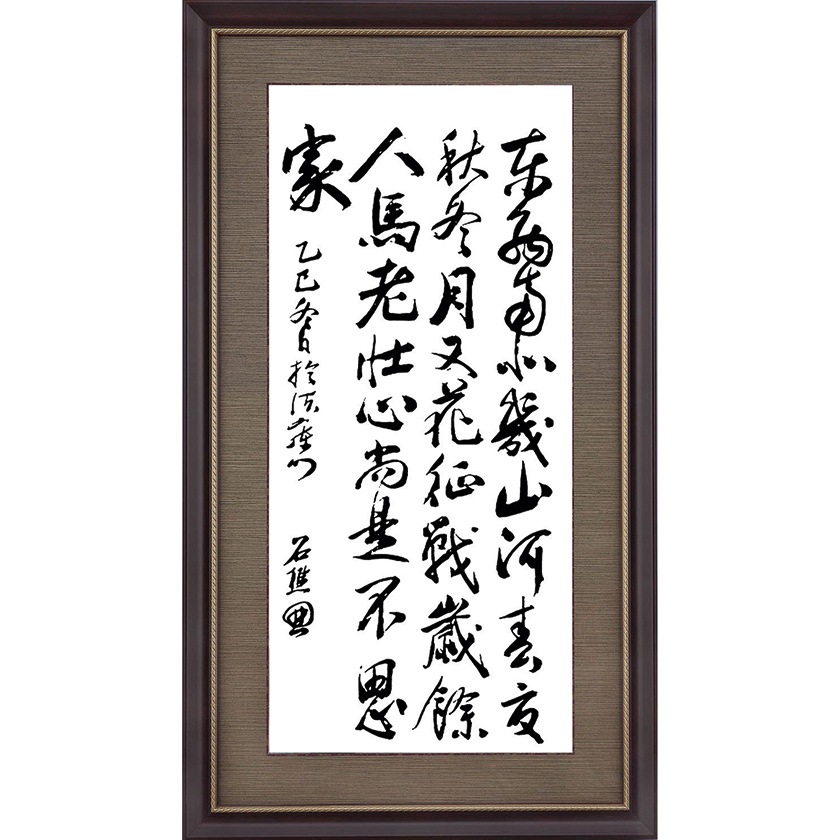 东西南北幾山河春夏
秋冬月又花征戰歲餘
人馬老壮心尚是不思
家
乙巳冬日於
石樵